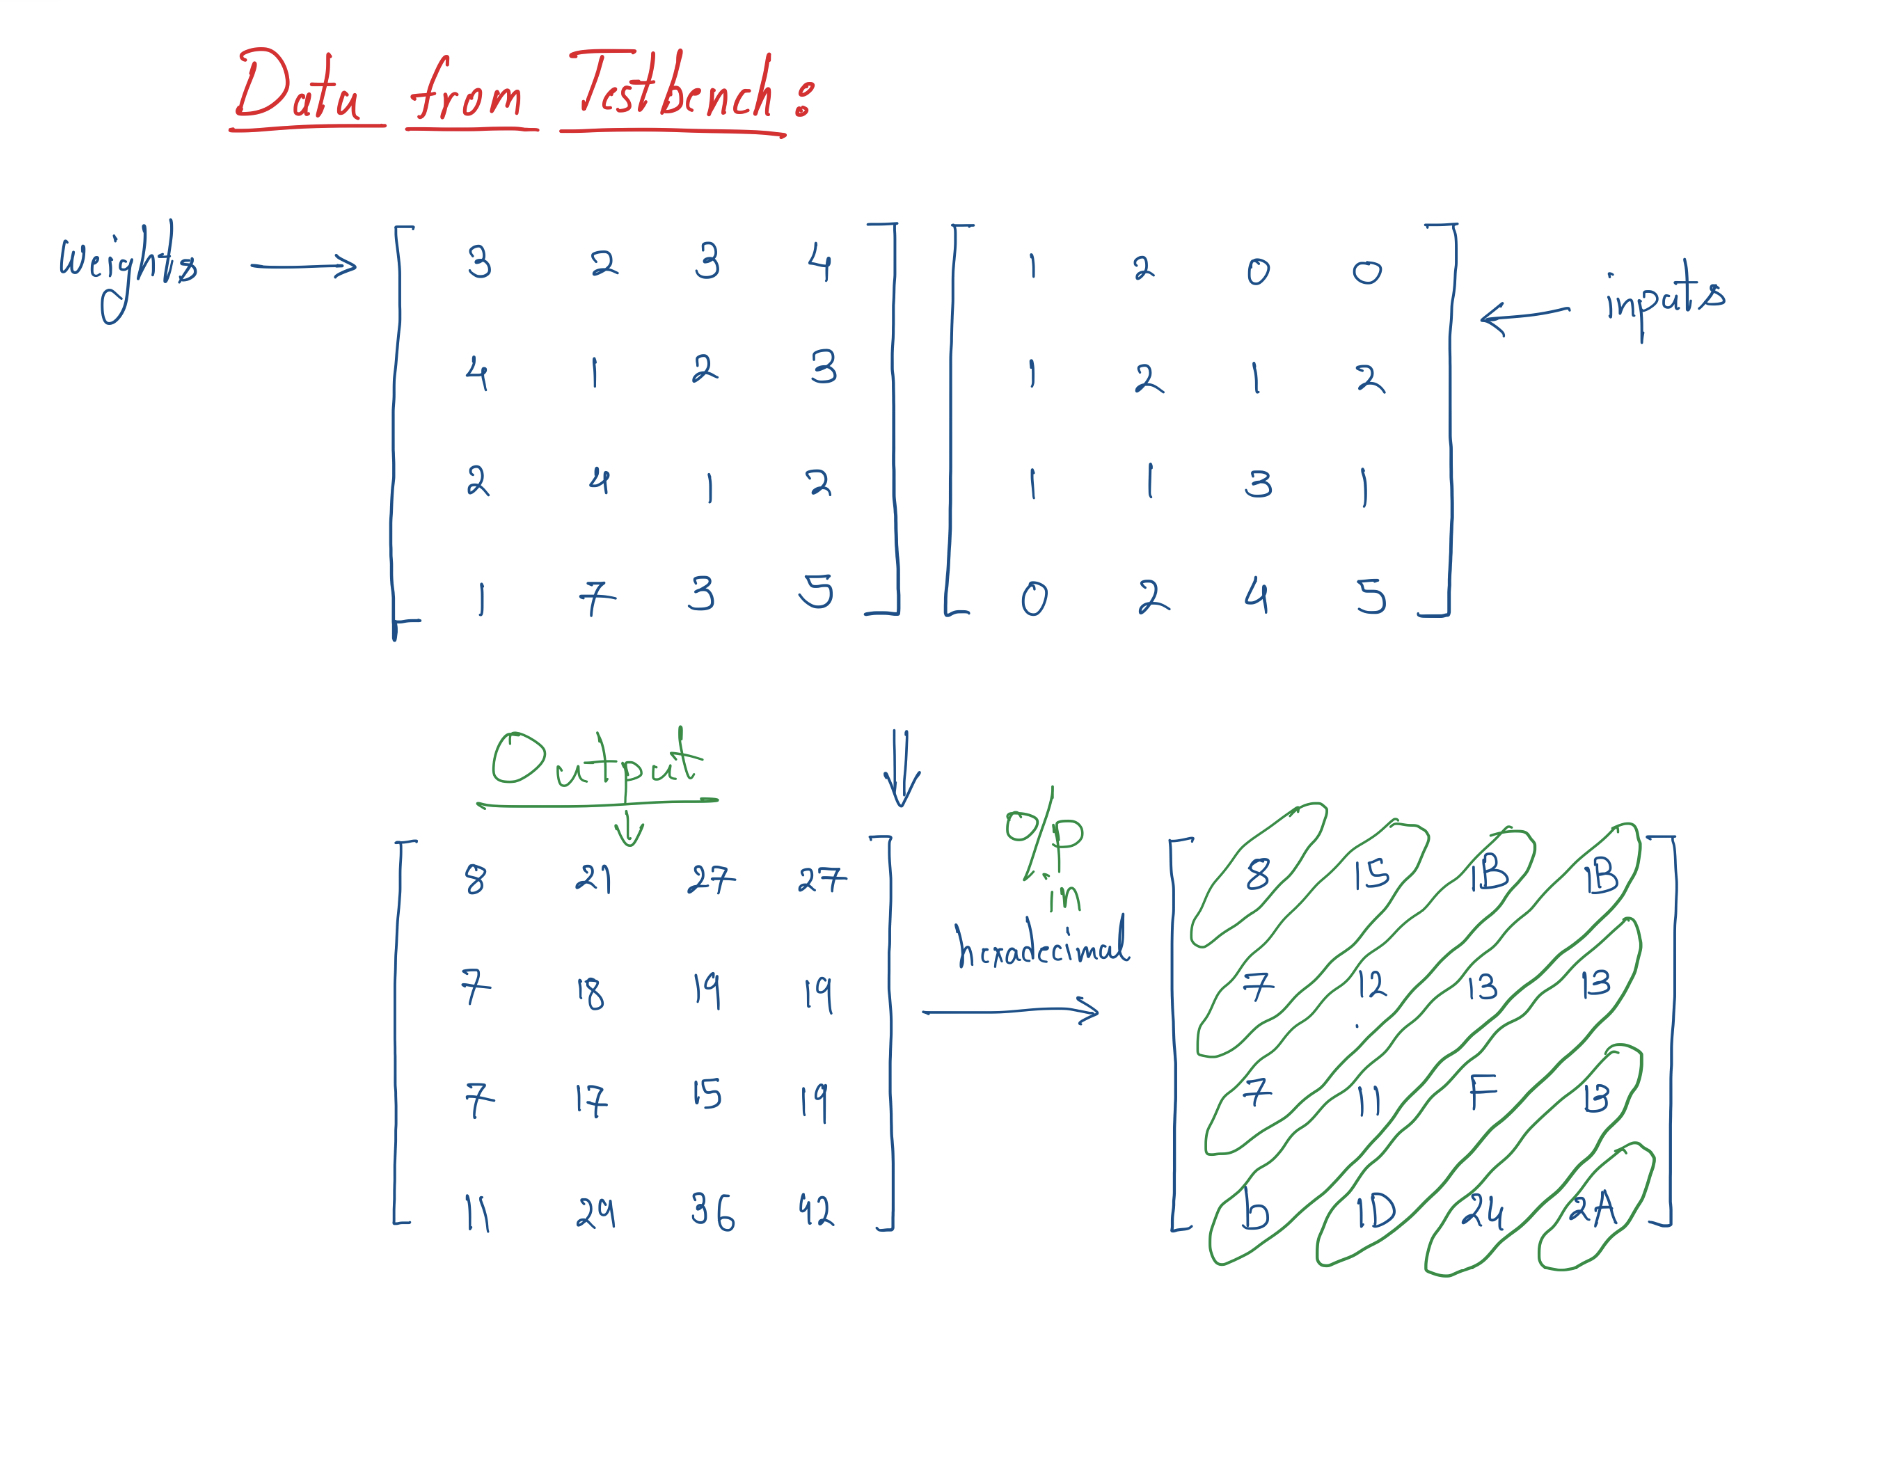 Data from Testbench:
weights → 3 2 3 4 1 2 0 0 ← inputs
4 1 2 3 1 2 1 2
2 4 1 2 1 1 3 1
1 7 3 5 0 2 4 5
Output
↓
⇓
8 21 27 27
7 18 19 19
7 17 15 19
11 29 36 42
O/p
in
hexadecimal
→
8 15 1B 1B
7 12 13 13
7 11 F 13
b 1D 24 2A